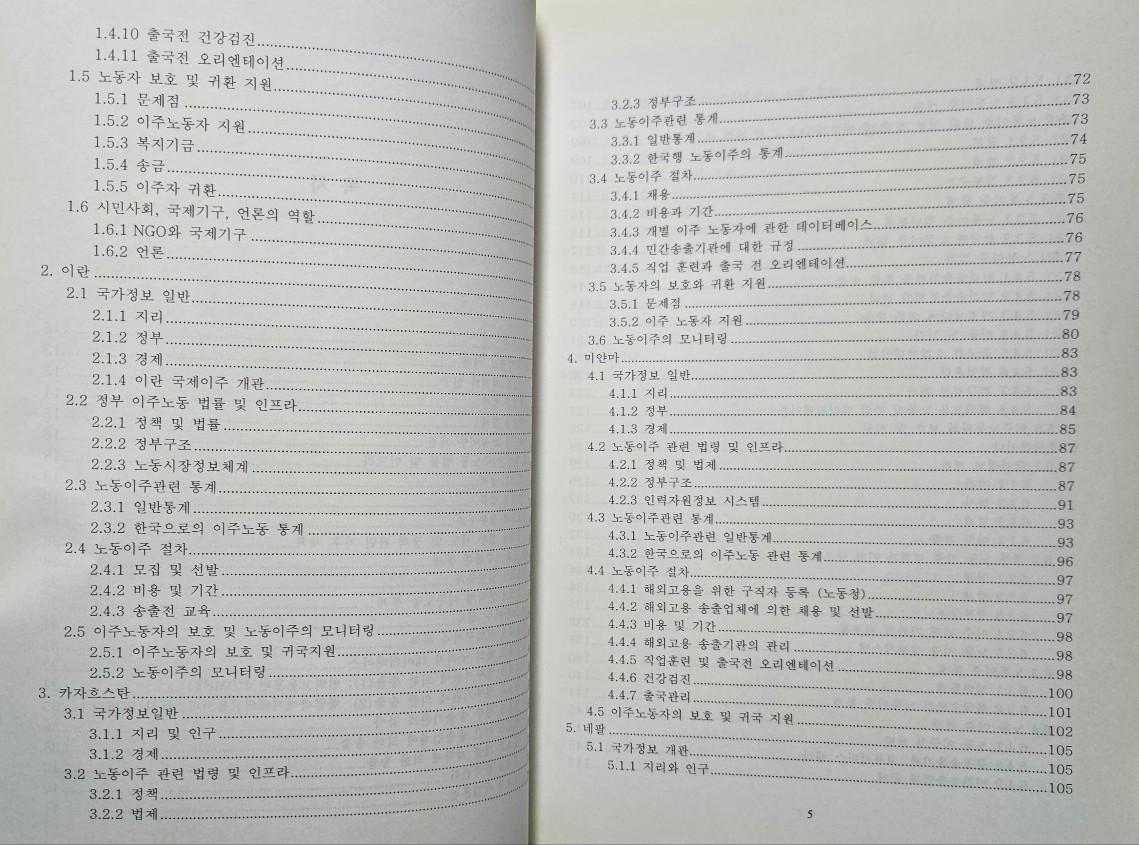 1.4.10 출국전 건강검진
1.4.11 출국전 오리엔테이션
1.5 노동자 보호 및 귀환 지원
1.5.1 문제점
1.5.2 이주노동자 지원
1.5.3 복지기금
1.5.4 송금
1.5.5 이주자 귀환
1.6 시민사회, 국제기구, 언론의 역할
1.6.1 NGO와 국제기구
1.6.2 언론
2. 이란
2.1 국가정보 일반
2.1.1 지리
2.1.2 정부
2.1.3 경제
2.1.4 이란 국제이주 개관
2.2 정부 이주노동 법률 및 인프라
2.2.1 정책 및 법률
2.2.2 정부구조
2.2.3 노동시장정보체계
2.3 노동이주관련 통계
2.3.1 일반통계
2.3.2 한국으로의 이주노동 통계
2.4 노동이주 절차
2.4.1 모집 및 선발
2.4.2 비용 및 기간
2.4.3 송출전 교육
2.5 이주노동자의 보호 및 노동이주의 모니터링
2.5.1 이주노동자의 보호 및 귀국지원
2.5.2 노동이주의 모니터링
3. 카자흐스탄
3.1 국가정보일반
3.1.1 지리 및 인구
3.1.2 경제
3.2 노동이주 관련 법령 및 인프라
3.2.1 정책
3.2.2 법제
3.2.3 정부구조 72
3.3 노동이주관련 통계 73
3.3.1 일반통계 73
3.3.2 한국행 노동이주의 통계 74
3.4 노동이주 절차 75
3.4.1 채용 75
3.4.2 비용과 기간 75
3.4.3 개별 이주 노동자에 관한 데이터베이스 76
3.4.4 민간송출기관에 대한 규정 76
3.4.5 직업 훈련과 출국 전 오리엔테이션 77
3.5 노동자의 보호와 귀환 지원 78
3.5.1 문제점 78
3.5.2 이주 노동자 지원 79
3.6 노동이주의 모니터링 80
4. 미얀마 83
4.1 국가정보 일반 83
4.1.1 지리 83
4.1.2 정부 84
4.1.3 경제 85
4.2 노동이주 관련 법령 및 인프라 87
4.2.1 정책 및 법제 87
4.2.2 정부구조 87
4.2.3 인력자원정보 시스템 91
4.3 노동이주관련 통계 93
4.3.1 노동이주관련 일반통계 93
4.3.2 한국으로의 이주노동 관련 통계 96
4.4 노동이주 절차 97
4.4.1 해외고용을 위한 구직자 등록 (노동청) 97
4.4.2 해외고용 송출업체에 의한 채용 및 선발 97
4.4.3 비용 및 기간 98
4.4.4 해외고용 송출기관의 관리 98
4.4.5 직업훈련 및 출국전 오리엔테이션 98
4.4.6 건강검진 100
4.4.7 출국관리 101
4.5 이주노동자의 보호 및 귀국 지원 102
5. 네팔 105
5.1 국가정보 개관 105
5.1.1 지리와 인구 105
5